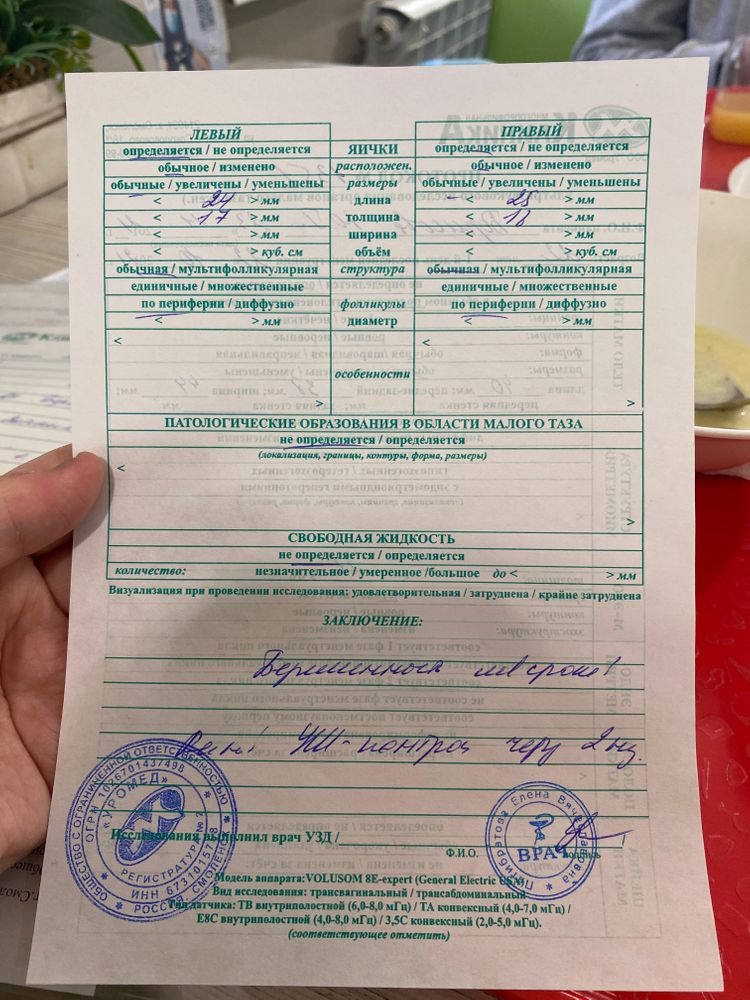 ЛЕВЫЙ ЯИЧКИ ПРАВЫЙ
определяется / не определяется определяется / не определяется
обычное / изменено расположен. обычное / изменено
обычные / увеличены / уменьшены размеры обычные / увеличены / уменьшены
< 24 > мм длина < 25 > мм
< 17 > мм толщина < 18 > мм
< > мм ширина < > мм
< > куб. см объём < > куб. см
обычная / мультифолликулярная структура обычная / мультифолликулярная
единичные / множественные единичные / множественные
по периферии / диффузно фолликулы по периферии / диффузно
< > мм диаметр < > мм
< <
особенности
> >
ПАТОЛОГИЧЕСКИЕ ОБРАЗОВАНИЯ В ОБЛАСТИ МАЛОГО ТАЗА
не определяется / определяется
(локализация, границы, контуры, форма, размеры)
<
>
СВОБОДНАЯ ЖИДКОСТЬ
не определяется / определяется
количество: незначительное / умеренное /большое до < > мм
Визуализация при проведении исследования: удовлетворительная / затруднена / крайне затруднена
ЗАКЛЮЧЕНИЕ:
Беременность
УЗИ-контроль через 2 нед.
ОБЩЕСТВО С ОГРАНИЧЕННОЙ ОТВЕТСТВЕННОСТЬЮ
ОГРН 1026701437498
«УРОМЕД»
РЕГИСТРАТУРА № 2
ИНН 6731015758
РОССИЯ СМОЛЕНСК
Исследования выполнил врач УЗД /
Елена Вячеславовна
ВРАЧ
Ф.И.О. подпись
Модель аппарата:VOLUSOM 8E-expert (General Electric USA)
Вид исследования: трансвагинальный / трансабдоминальный
Тип датчика: ТВ внутриполостной (6,0-8,0 мГц) / ТА конвексный (4,0-7,0 мГц) /
E8C внутриполостной (4,0-8,0 мГц) / 3,5С конвексный (2,0-5,0 мГц).
(соответствующее отметить)